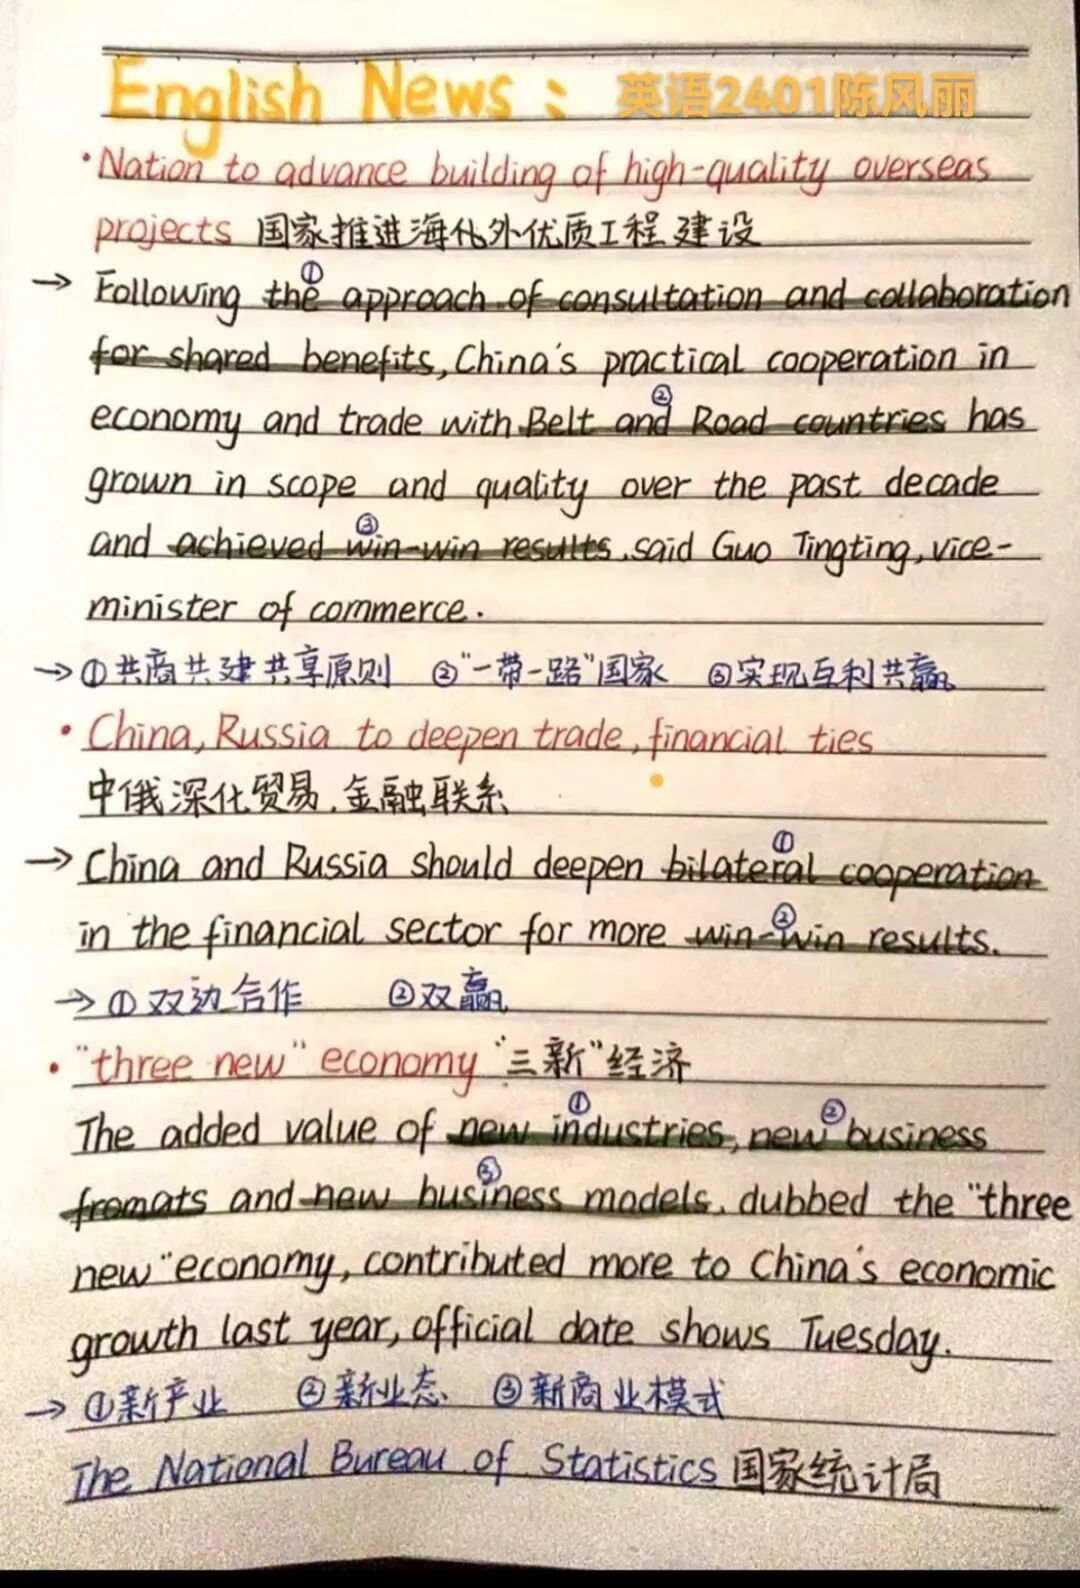 English News: 英语2401陈风丽
·Nation to advance building of high-quality overseas
projects 国家推进海化外优质工程建设
→ Following the① approach of consultation and collaboration
for shared benefits, China's practical cooperation in
economy and trade with Belt and② Road countries has
grown in scope and quality over the past decade
and achieved win-win③ results, said Guo Tingting, vice-
minister of commerce.
→ ①共商共建共享原则 ②"一带一路"国家 ③实现互利共赢
· China, Russia to deepen trade, financial ties
中俄深化贸易,金融联系
→ China and Russia should deepen bilateral① cooperation
in the financial sector for more win-win② results.
→ ①双边合作 ②双赢
· "three new" economy "三新"经济
The added value of new industries①, new② business
fromats and new business③ models, dubbed the "three
new" economy, contributed more to China's economic
growth last year, official date shows Tuesday.
→ ①新产业 ②新业态 ③新商业模式
The National Bureau of Statistics 国家统计局